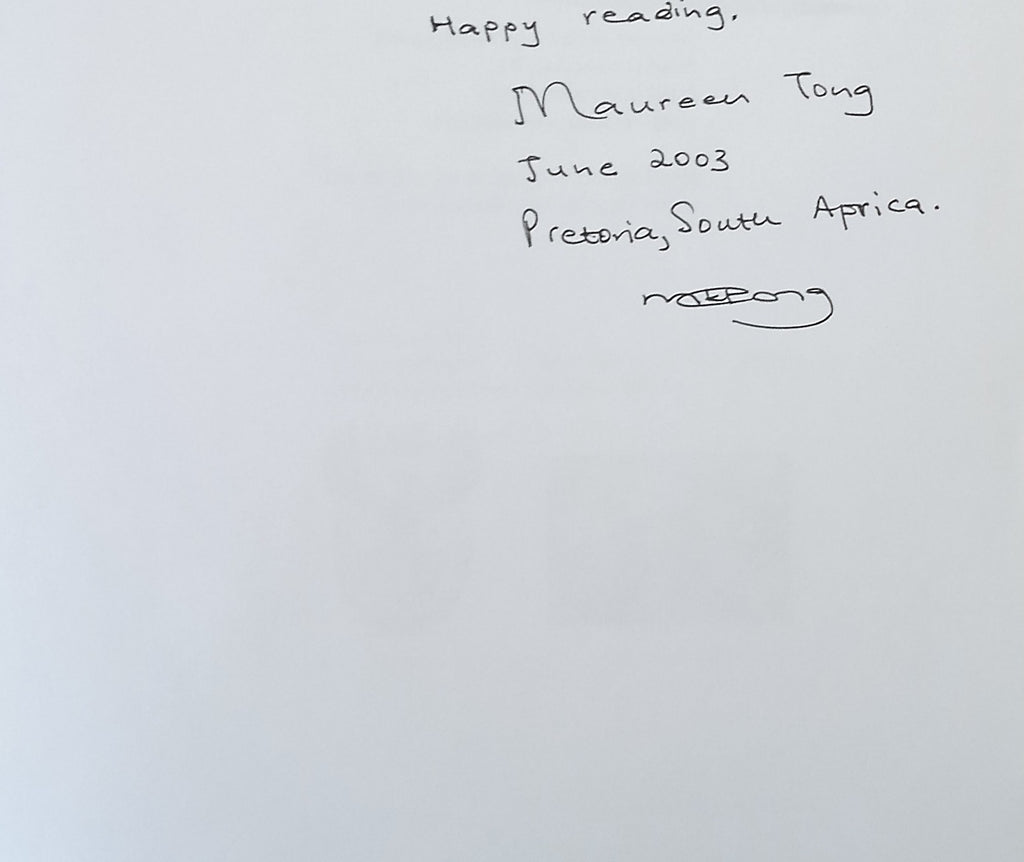 Happy reading.
Maureen Tong
June 2003
Pretoria, South Africa.